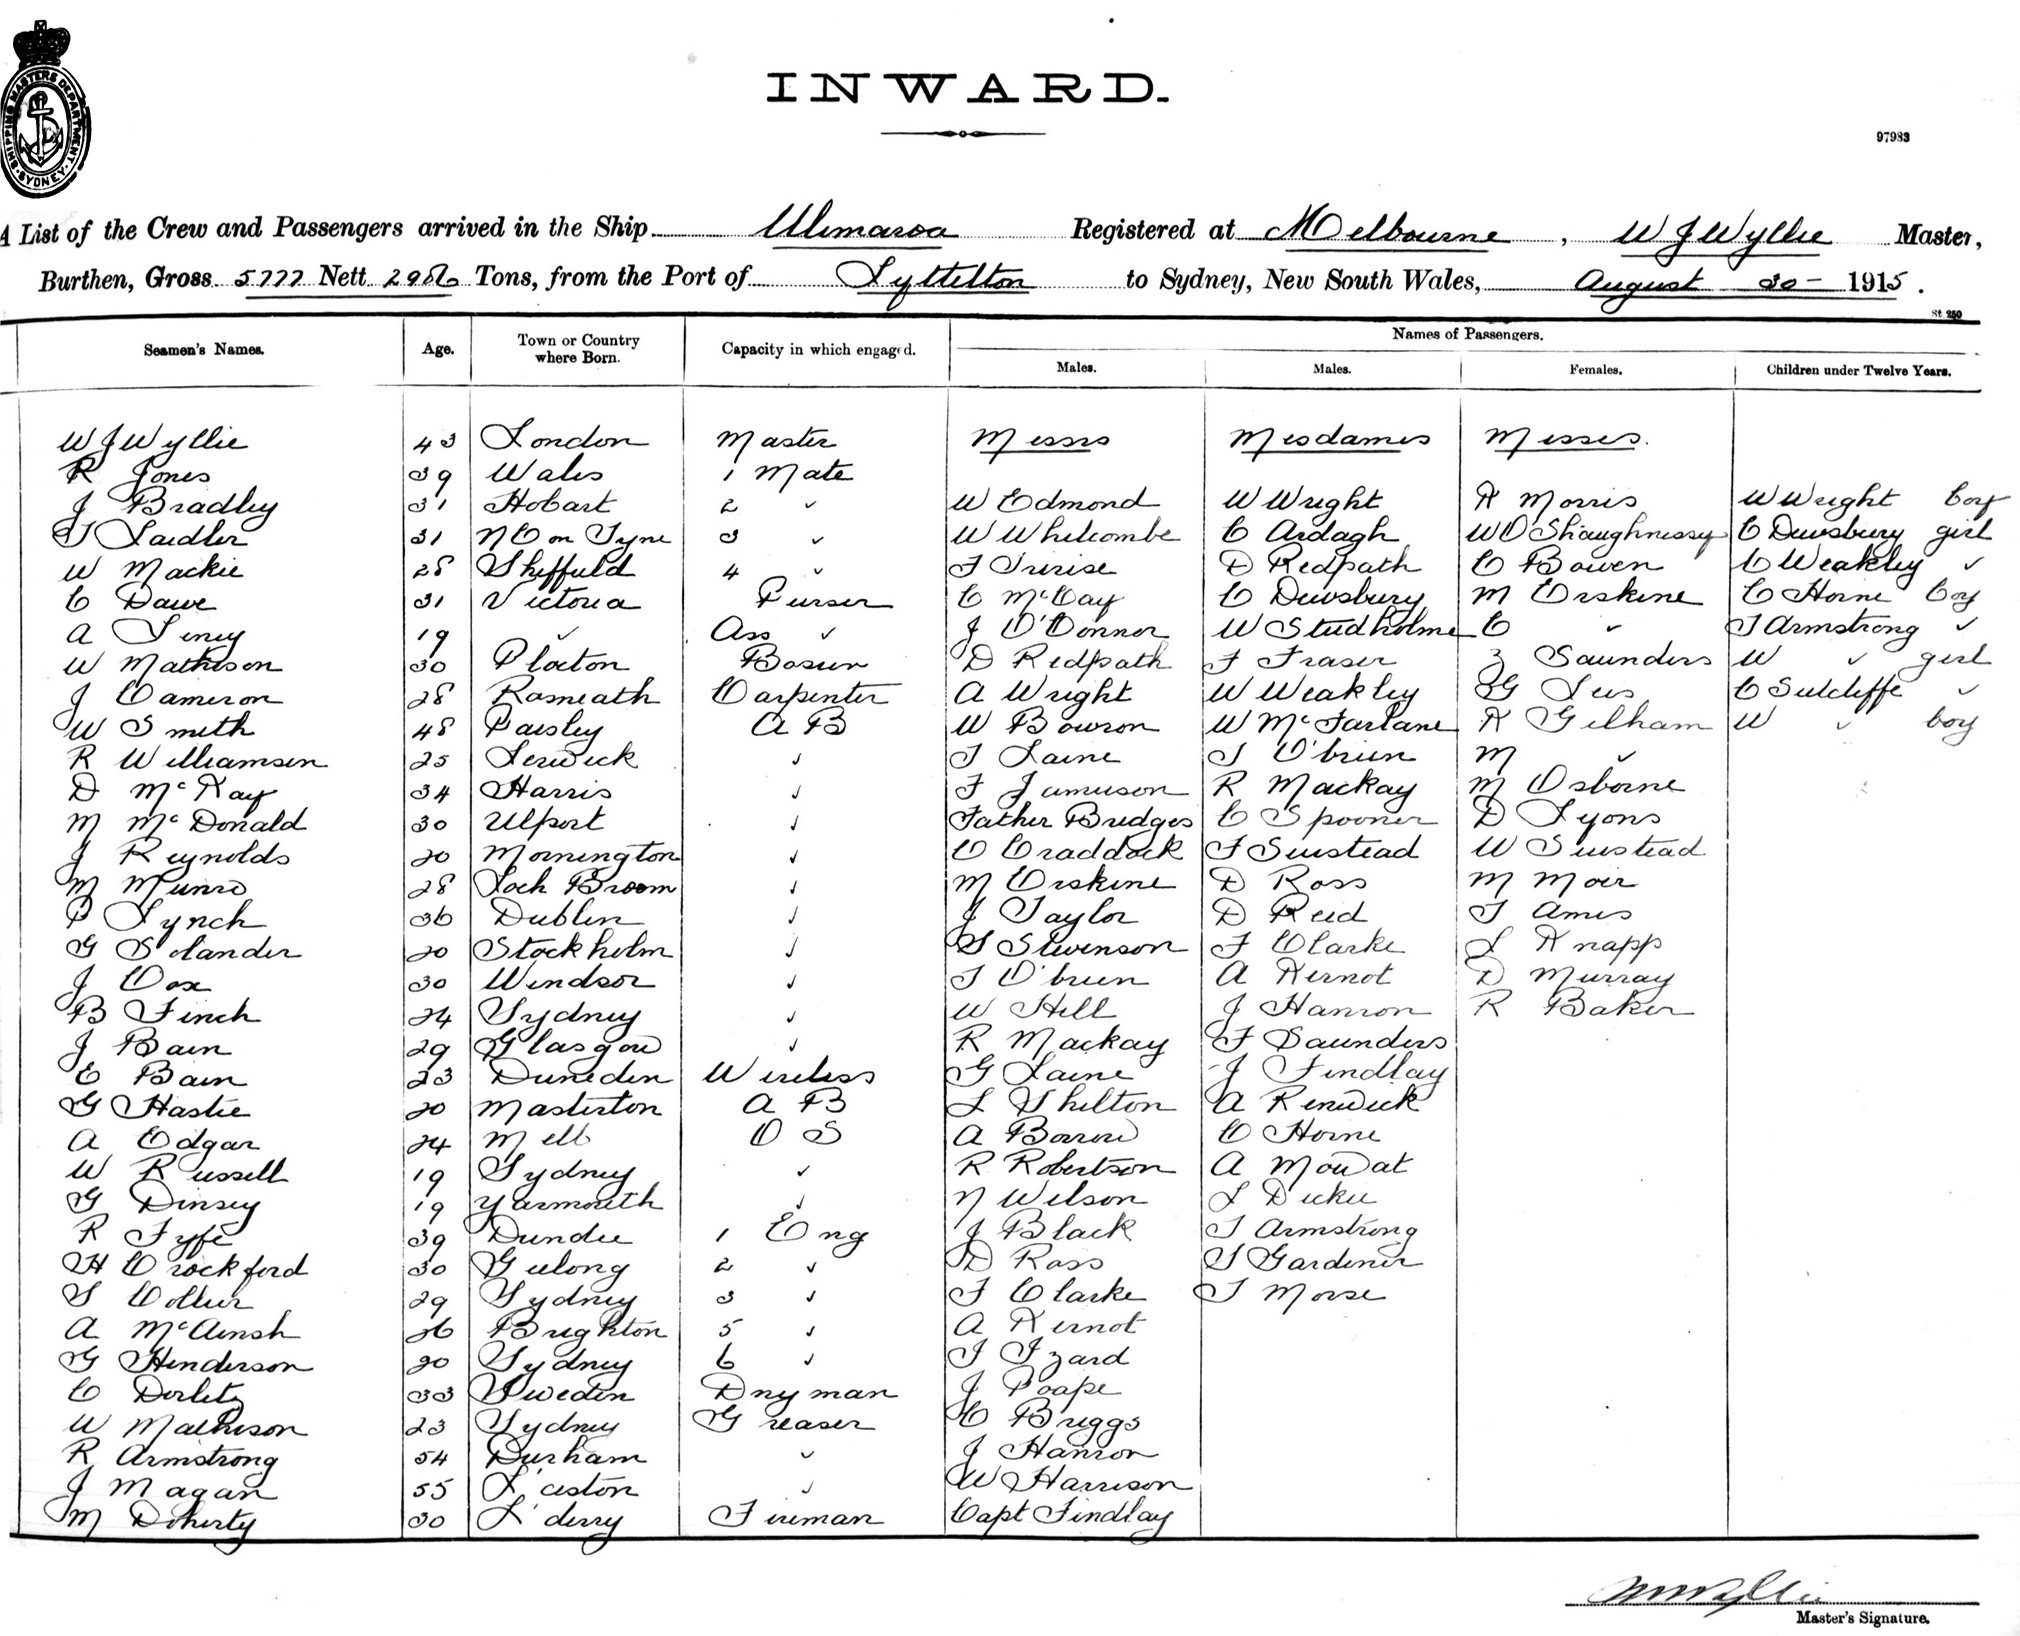 SHIPPING MASTERS DEPARTMENT
SYDNEY
INWARD.
97983
A List of the Crew and Passengers arrived in the Ship Ulimaroa Registered at Melbourne, W J Wyllie Master,
Burthen, Gross 5777 Nett 2986 Tons, from the Port of Lyttelton to Sydney, New South Wales, August 30 - 1915.
St 250
Seamen's Names. Age. Town or Country where Born. Capacity in which engaged. Names of Passengers.
Males. Males. Females. Children under Twelve Years.
W J Wyllie 43 London Master Messrs Mesdames Misses.
R Jones 39 Wales 1 Mate
J Bradley 31 Hobart 2 ✓ W Edmond W Wright K Morris W Wright boy
T Laidler 31 N C on Tyne 3 ✓ W Whitcombe C Ardagh W O'Shaughnessy C Dewsbury girl
W Mackie 28 Sheffield 4 ✓ D Redpath C Bowen C Weakley ✓
C Dawe 31 Victoria Purser C McCay C Dewsbury M Erskine C Horne boy
A 19 ✓ Ass ✓ J O'Connor W Studholme C ✓ T Armstrong ✓
W Mathison 30 Bosun D Redpath F Fraser Saunders W ✓ girl
J Cameron 28 Rameath Carpenter A Wright W Weakley G Lees C Sutcliffe ✓
W Smith 48 Paisley A B W Bowron W McFarlane K Gilham W ✓ boy
R Williamson 25 Lerwick ✓ T Laine T O'brien M ✓
D McKay 34 Harris ✓ F Jameson R Mackay M Osborne
M McDonald 30 Ulport ✓ Father Bridges C Spooner D Lyons
J Reynolds 20 Mornington ✓ C Craddock F Sinstead W Sinstead
M Munro 28 Loch Broom ✓ M Erskine D Ross M Moir
P Lynch 36 Dublin ✓ J Taylor D Reid T Ames
G Solander 20 Stockholm ✓ S Stevenson F Clarke L Knapp
J Cox 30 Windsor ✓ T O'brien A Kernot D Murray
B Finch 24 Sydney ✓ W Hill J Hanron R Baker
J Bain 29 Glasgow ✓ R Mackay F Saunders
C Bain 23 Dunedin Wireless G Laine J Findlay
G Hastie 20 Masterton A B L Shilton A Renwick
A Edgar 24 Melb O S A Borrow C Horne
W Russell 19 Sydney ✓ R Robertson A Mowat
G Dinsey 19 Yarmouth ✓ N Wilson L Dickie
R Fyfe 39 Dundee 1 Eng J Black T Armstrong
H Crockford 30 Geelong 2 ✓ D Ross S Gardiner
S Collier 29 Sydney 3 ✓ F Clarke T Morse
A McAinsh 26 Brighton 5 ✓ A Kernot
G Henderson 20 Sydney 6 ✓ T Izard
C 33 Sweden Dnyman J Poape
W Mathison 23 Sydney Greaser C Briggs
R Armstrong 54 Durham ✓ J Hanron
J Magan 55 ✓ W Harrison
M Doherty 30 L'derry Fireman Capt Findlay
W J Wyllie
Master's Signature.